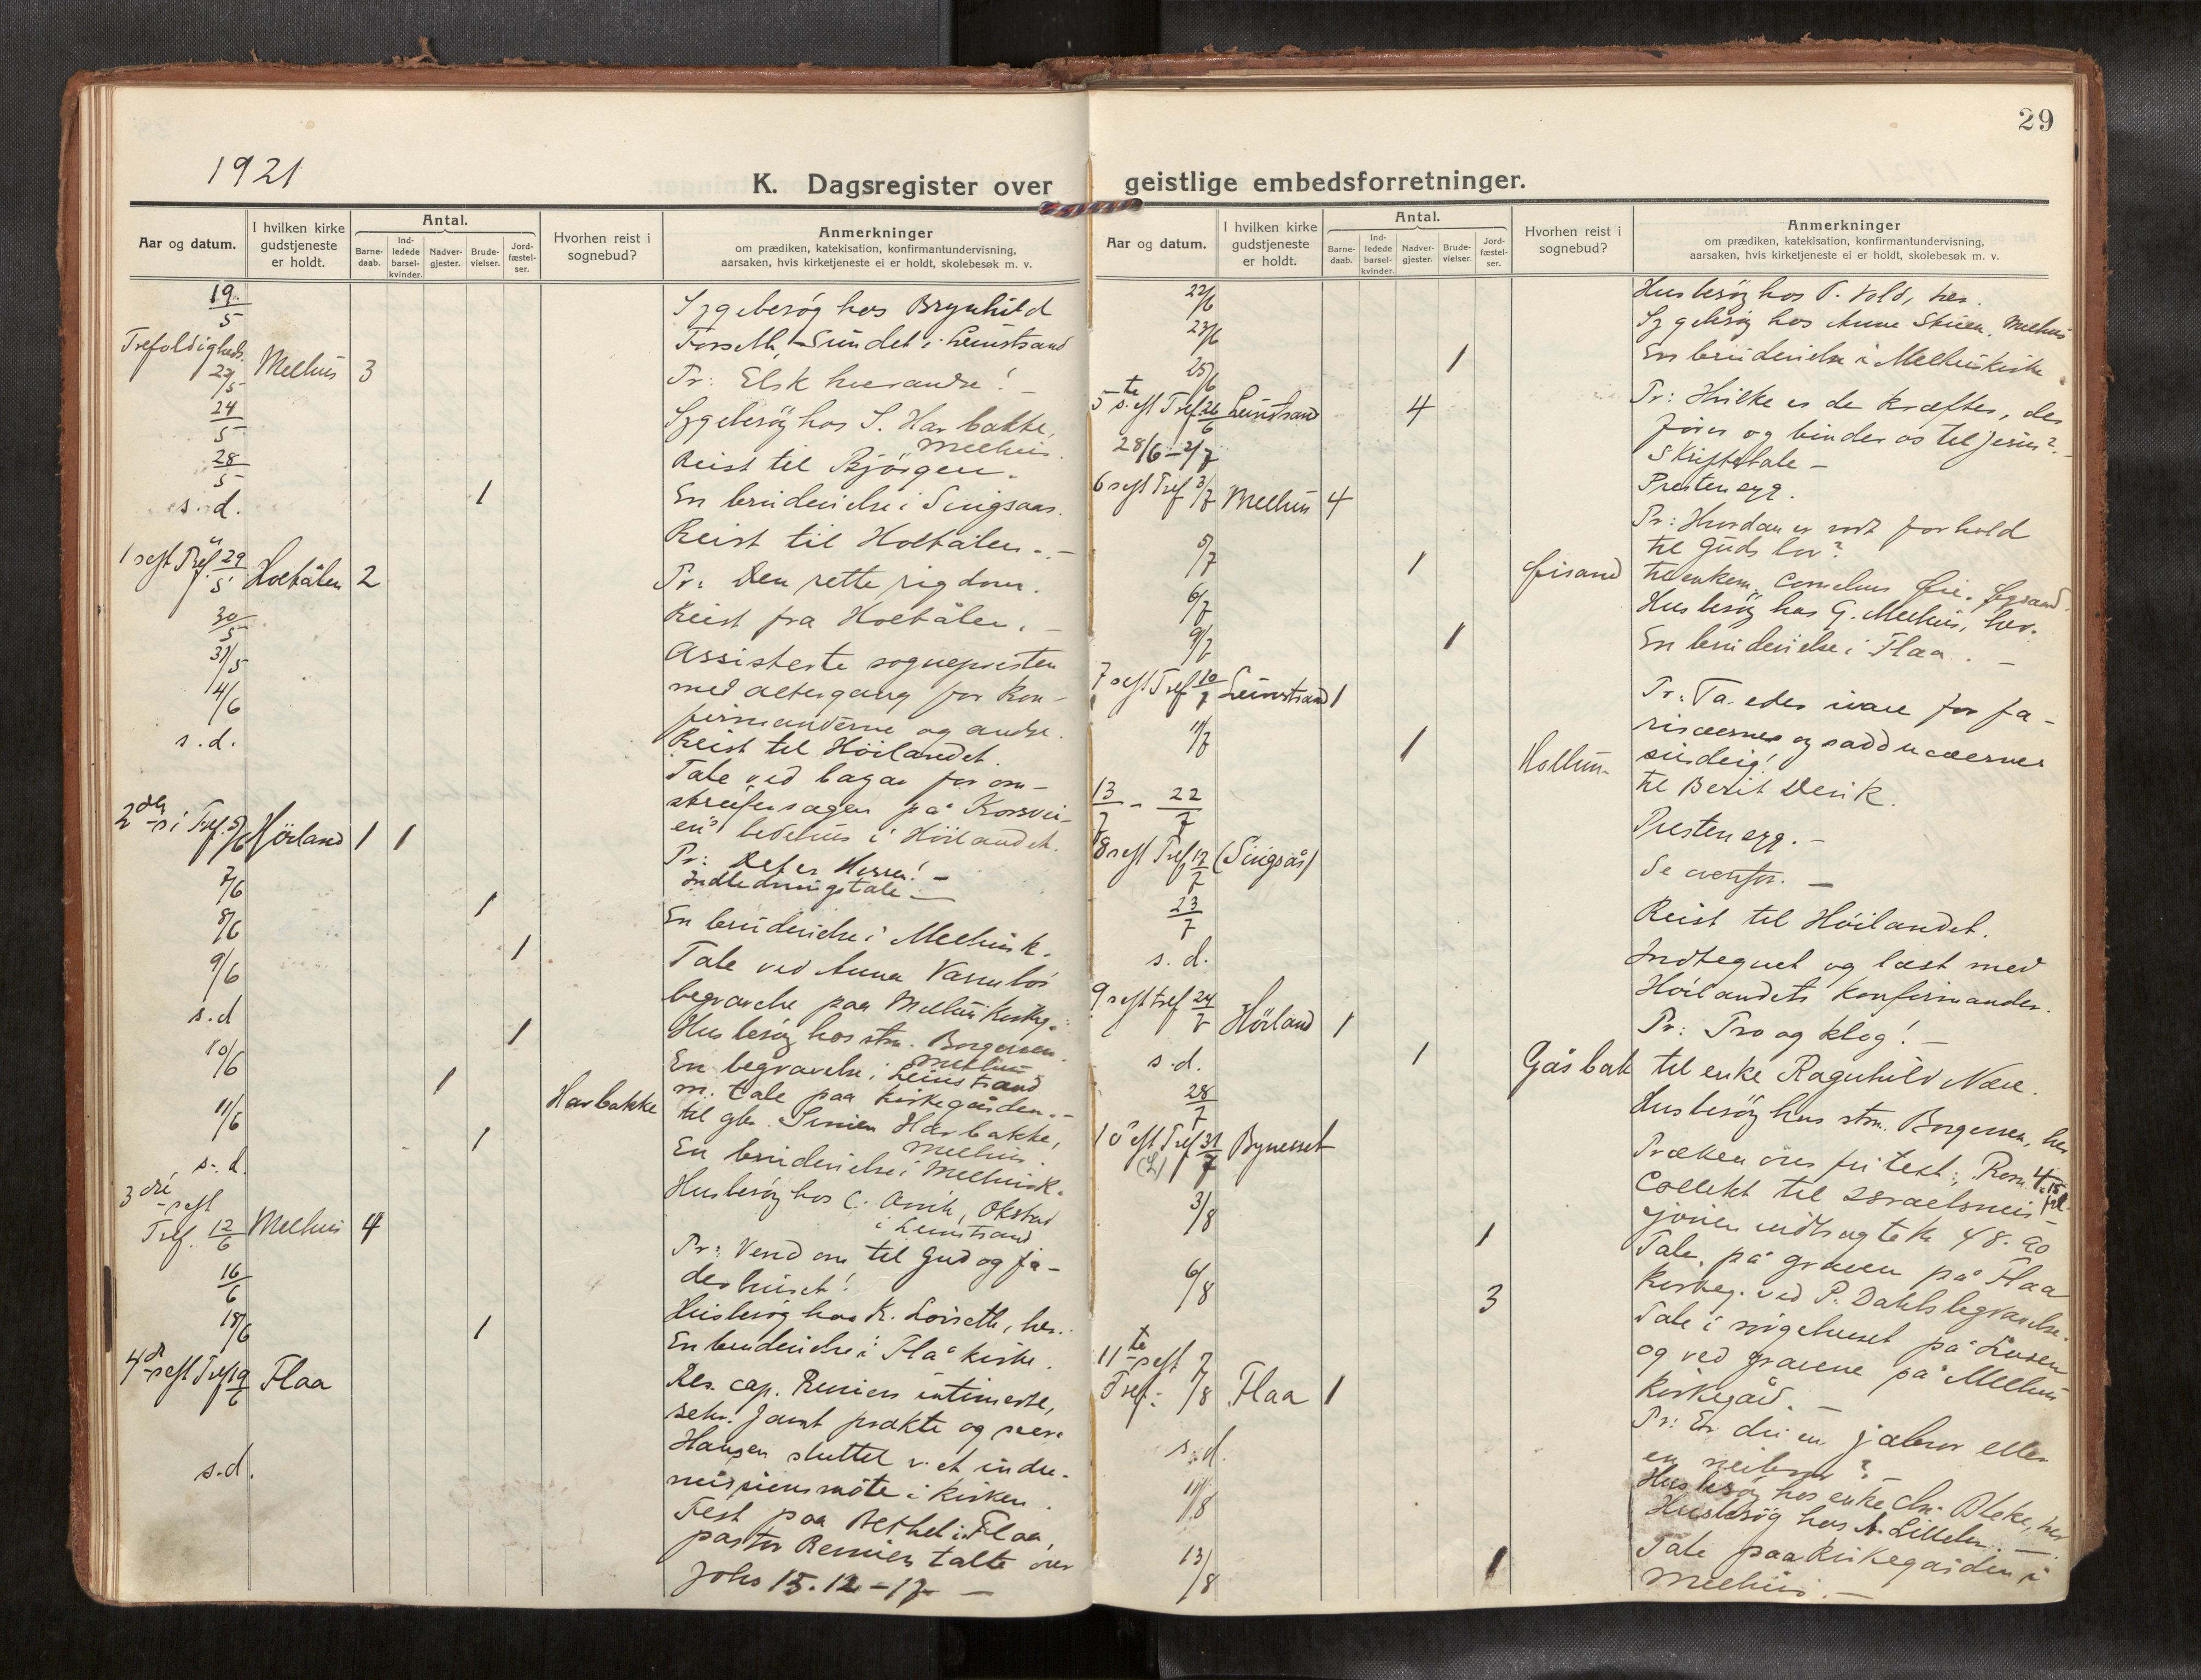 29
1921
K. Dagsregister over geistlige embedsforretninger.
Aar og datum.
I hvilken kirke gudstjeneste er holdt.
Antal.
Barne-daab.
Ind-ledede barsel-kvinder.
Nadver-gjester.
Brude-vielser.
Jord-fæstel-ser.
Hvorhen reist i sognebud?
Anmerkninger
om prædiken, katekisation, konfirmantundervisning,
aarsaken, hvis kirketjeneste ei er holdt, skolebesøk m. v.
19/5 Sygebesøg hos Brynhild
Forseth, Sundet i Leinstrand
Trefoldigheds. 22/5 Melhus 3 Pr: Elsk hverandre! –
24/5 Sygebesøg hos S. Harbakke,
Melhus.
28/5 Reist til Bjørgen.
s. d. 1 En brudevielse i Singsaas.
Reist til Holtålen. –
1 s eft Tref. 29/5 Holtålen 2 Pr: Den rette rigdom.
30/5 Reist fra Holtålen. –
31/5 Assisterte sognepresten
med altergang for kon-
firmanderne og andre.
4/6 Reist til Höilandet.
s. d. Tale ved bazar for om-
streifersagen på Korsvei-
en's bedehus i Höilandet.
2den s i Tref. 5/6 Höiland 1 1 Pr: Det er Herren! –
Indledningstale –
7/6 1 En brudevielse i Melhus k.
8/6 1 Tale ved Anna Varmbos
begravelse paa Melhus Kirkeg.
9/6 Husbesøg hos stm. Borgersen.
Melhus
s. d 1 En begravelse i Leinstrand
m. tale paa kirkegården. –
10/6 1 Harbakke til gbr. Simen Harbakke,
Melhus.
11/6 1 En brudevielse i Melhus k.
s. d. Husbesøg hos C. Okstad
i Leinstrand
3die s eft Tref. 12/6 Melhus 4 Pr: Vend om til Gud og fa-
derhuset!
16/6 Husbesøg hos K. Loiseth, her.
18/6 1 En brudevielse i Flå kirke.
4de s eft Tref 19/6 Flaa Res. cap. intimerte,
sekr. Jamt prækte og
Hansen sluttet v. et indre-
misjonsmöte i kirken.
s. d. Fest paa Bethel i Flaa,
pastor talte over
Johs 15. 12 – 17 –
22/6 Husbesøg hos P. Vold, her.
23/6 Sygebesøg hos Anne Skuen, Melhus
25/6 1 En brudevielse i Melhus kirke.
5te s. eft Tref 26/6 Leinstrand 4 Pr: Hvilke er de kræfter, der
fører og binder os til Jesus?
Skriftetale –
28/6 – 2/7 Presten syg.
6 s eft Tref 3/7 Melhus 4 Pr: Hvordan er vort forhold
til Guds lov?
5/7 1 Øisand til enkem. Cornelius Øie. Øysand.
6/7 Husbesøg hos G. Melhus, her.
9/7 1 En brudevielse i Flaa. –
7 s eft Tref 10/7 Leinstrand 1 Pr: Ta eder ivare for fa-
risæernes og sadducæernes
surdeig!
11/7 1 Hollum. til Berit Devik.
13/7 – 22/7 Presten syg. –
8 s eft Tref 17/7 (Singsås) Se ovenfor. –
23/7 Reist til Höilandet.
s. d. Indtegnet og læst med
Höilandets konfirmander.
9 s eft tref 24/7 Höiland 1 Pr: Tro og klog! –
s. d. 1 Gåsbak til enke Ragnhild Næve.
28/7 Husbesøg hos stm. Borgersen, her
10 s eft Tref 31/7 Bynesset Præken over fri tekst: Rom. 4. 15
Collekt til Israelsmis-
sjonen indbragte Kr 48. 90
3/8 1 Tale på graven på Flaa
Kirkeg. ved P. Dahls begravelse.
6/8 3 Tale i sørgehuset på Losen
og ved gravene på Melhus
Kirkegård. –
11te s eft Tref: 7/8 Flaa 1 Pr: Er du en jabror eller
en neibror?
s. d. Husbesøg hos enke Chr. Bleke, her
11/8 Husbesøg hos A. Lillelien. –
13/8 1 Tale paa kirkegården i
Melhus. –